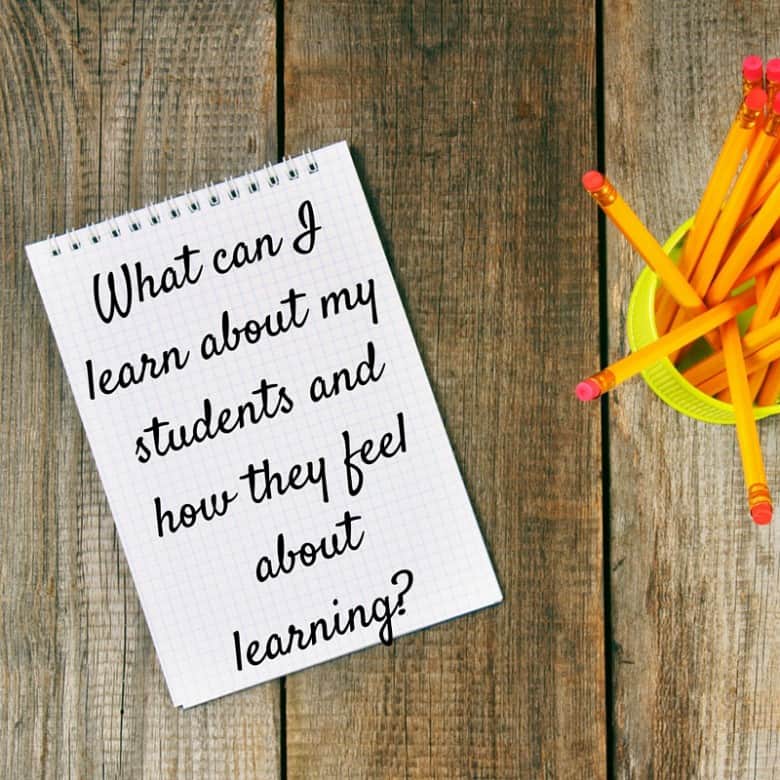 What can I
learn about my
students and
how they feel
about
learning?